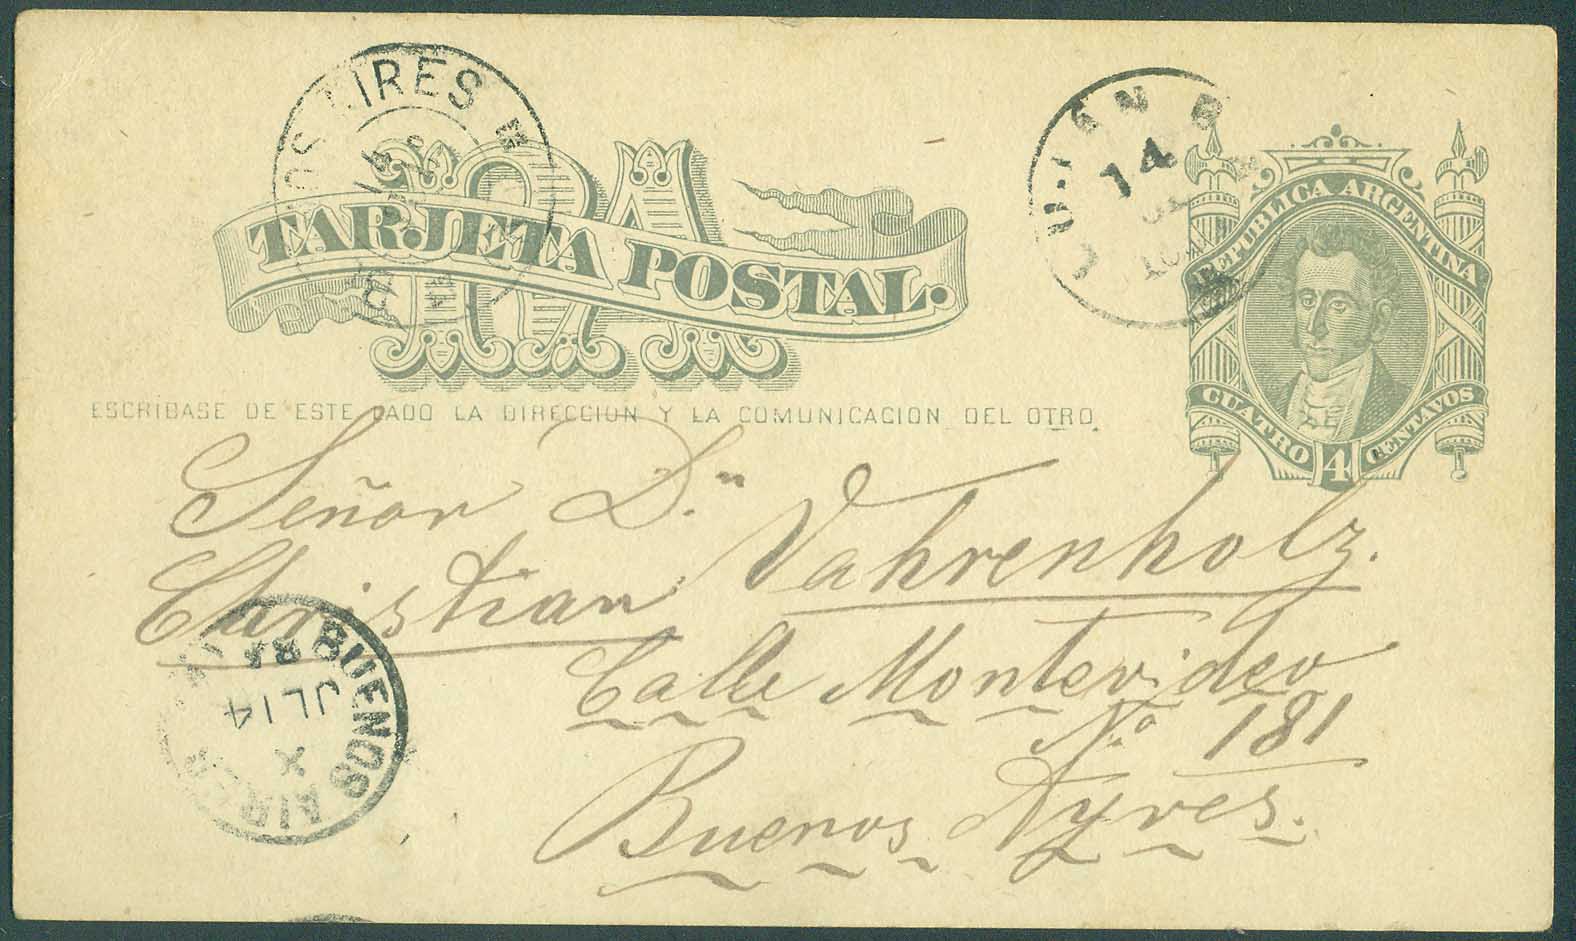 RA
TARJETA POSTAL.
REPUBLICA ARGENTINA
CUATRO 4 CENTAVOS
14
ESCRIBASE DE ESTE LADO LA DIRECCION Y LA COMUNICACION DEL OTRO.
Señor Dn Vahrenholz.
Christian
Calle Montevideo
No. 181
Buenos Ayres.
BUENOS AIRES
JL 14
X